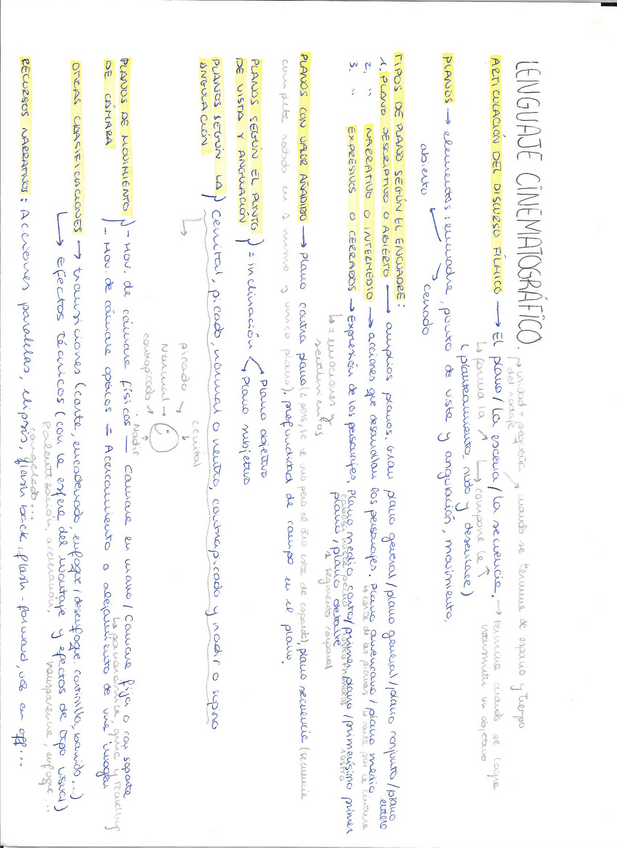 LENGUAJE CINEMATOGRÁFICO
unidad + pequeña del montaje
cuando se termine de espacio y tiempo
ARTICULACIÓN DEL DISCURSO FÍLMICO → El plano / la escena / la secuencia. → termina cuando se logre
forma la compone la un objetivo
(planteamiento, nudo y desenlace)
PLANOS → elementos: encuadre, punto de vista y angulación, movimiento.
abierto cerrado
TIPOS DE PLANO SEGÚN EL ENCUADRE:
1. PLANO DESCRIPTIVO O ABIERTO → amplios planos. Gran plano general / plano general / plano conjunto / plano entero
2. " NARRATIVO O INTERMEDIO → acciones que desarrollan los personajes. Plano americano / plano medio
3. " EXPRESIVOS O CERRADOS → Expresión de los personajes. Plano medio corto / primer plano / primerísimo primer
plano / plano detalle
rostro
= emociones y sentimientos
segmento corporal
PLANOS CON VALOR AÑADIDO → Plano contra plano (), plano secuencia (secuencia
completa rodada en 1 mismo y único plano), profundidad de campo en el plano.
PLANOS SEGÚN EL PUNTO DE VISTA Y ANGULACIÓN = inclinación
Plano objetivo
Plano subjetivo
PLANOS SEGÚN LA ANGULACIÓN
Cenital, picado, normal o neutro, contrapicado y nadir o supino
cenital
picado
Normal
contrapicado
Nadir
PLANOS DE MOVIMIENTO DE CÁMARA
- Mov. de cámara físicos — Cámara en mano / Cámara fija o con soporte
panorámica, grúa y travelling
- Mov. de cámara ópticos = Acercamiento o alejamiento de una imagen
OTRAS CLASIFICACIONES → transiciones (corte, encadenado, enfoque / desenfoque, cortinilla, barrido...)
→ Efectos técnicos (con la esfera del montaje y efectos de tipo visual)
Ralentización, aceleración, congelado... transparencia, enfoque...
RECURSOS NARRATIVOS: Acciones paralelas, elipsis, flash back, flash-forward, voz en off...